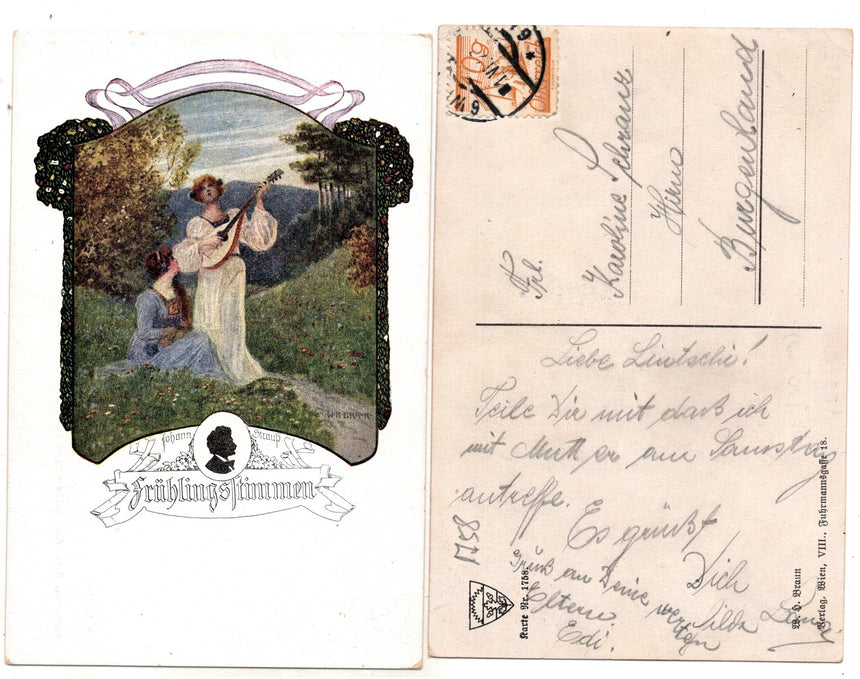 W.H.BRAUN
Johann Strauß
Frühlingsstimmen
Frl.
Karoline Schranz
Hirm
Burgenland
Liebe Lintschi!
Teile Dir mit daß ich
mit Mutter am Samstag
antreffe.
Es grüßt
Dich
Grüß an Deine werten
Eltern
Edi.
1758
Karte Nr. 1758.
W. H. Braun
Verlag, Wien, VIII., Fuhrmannsgasse 18.